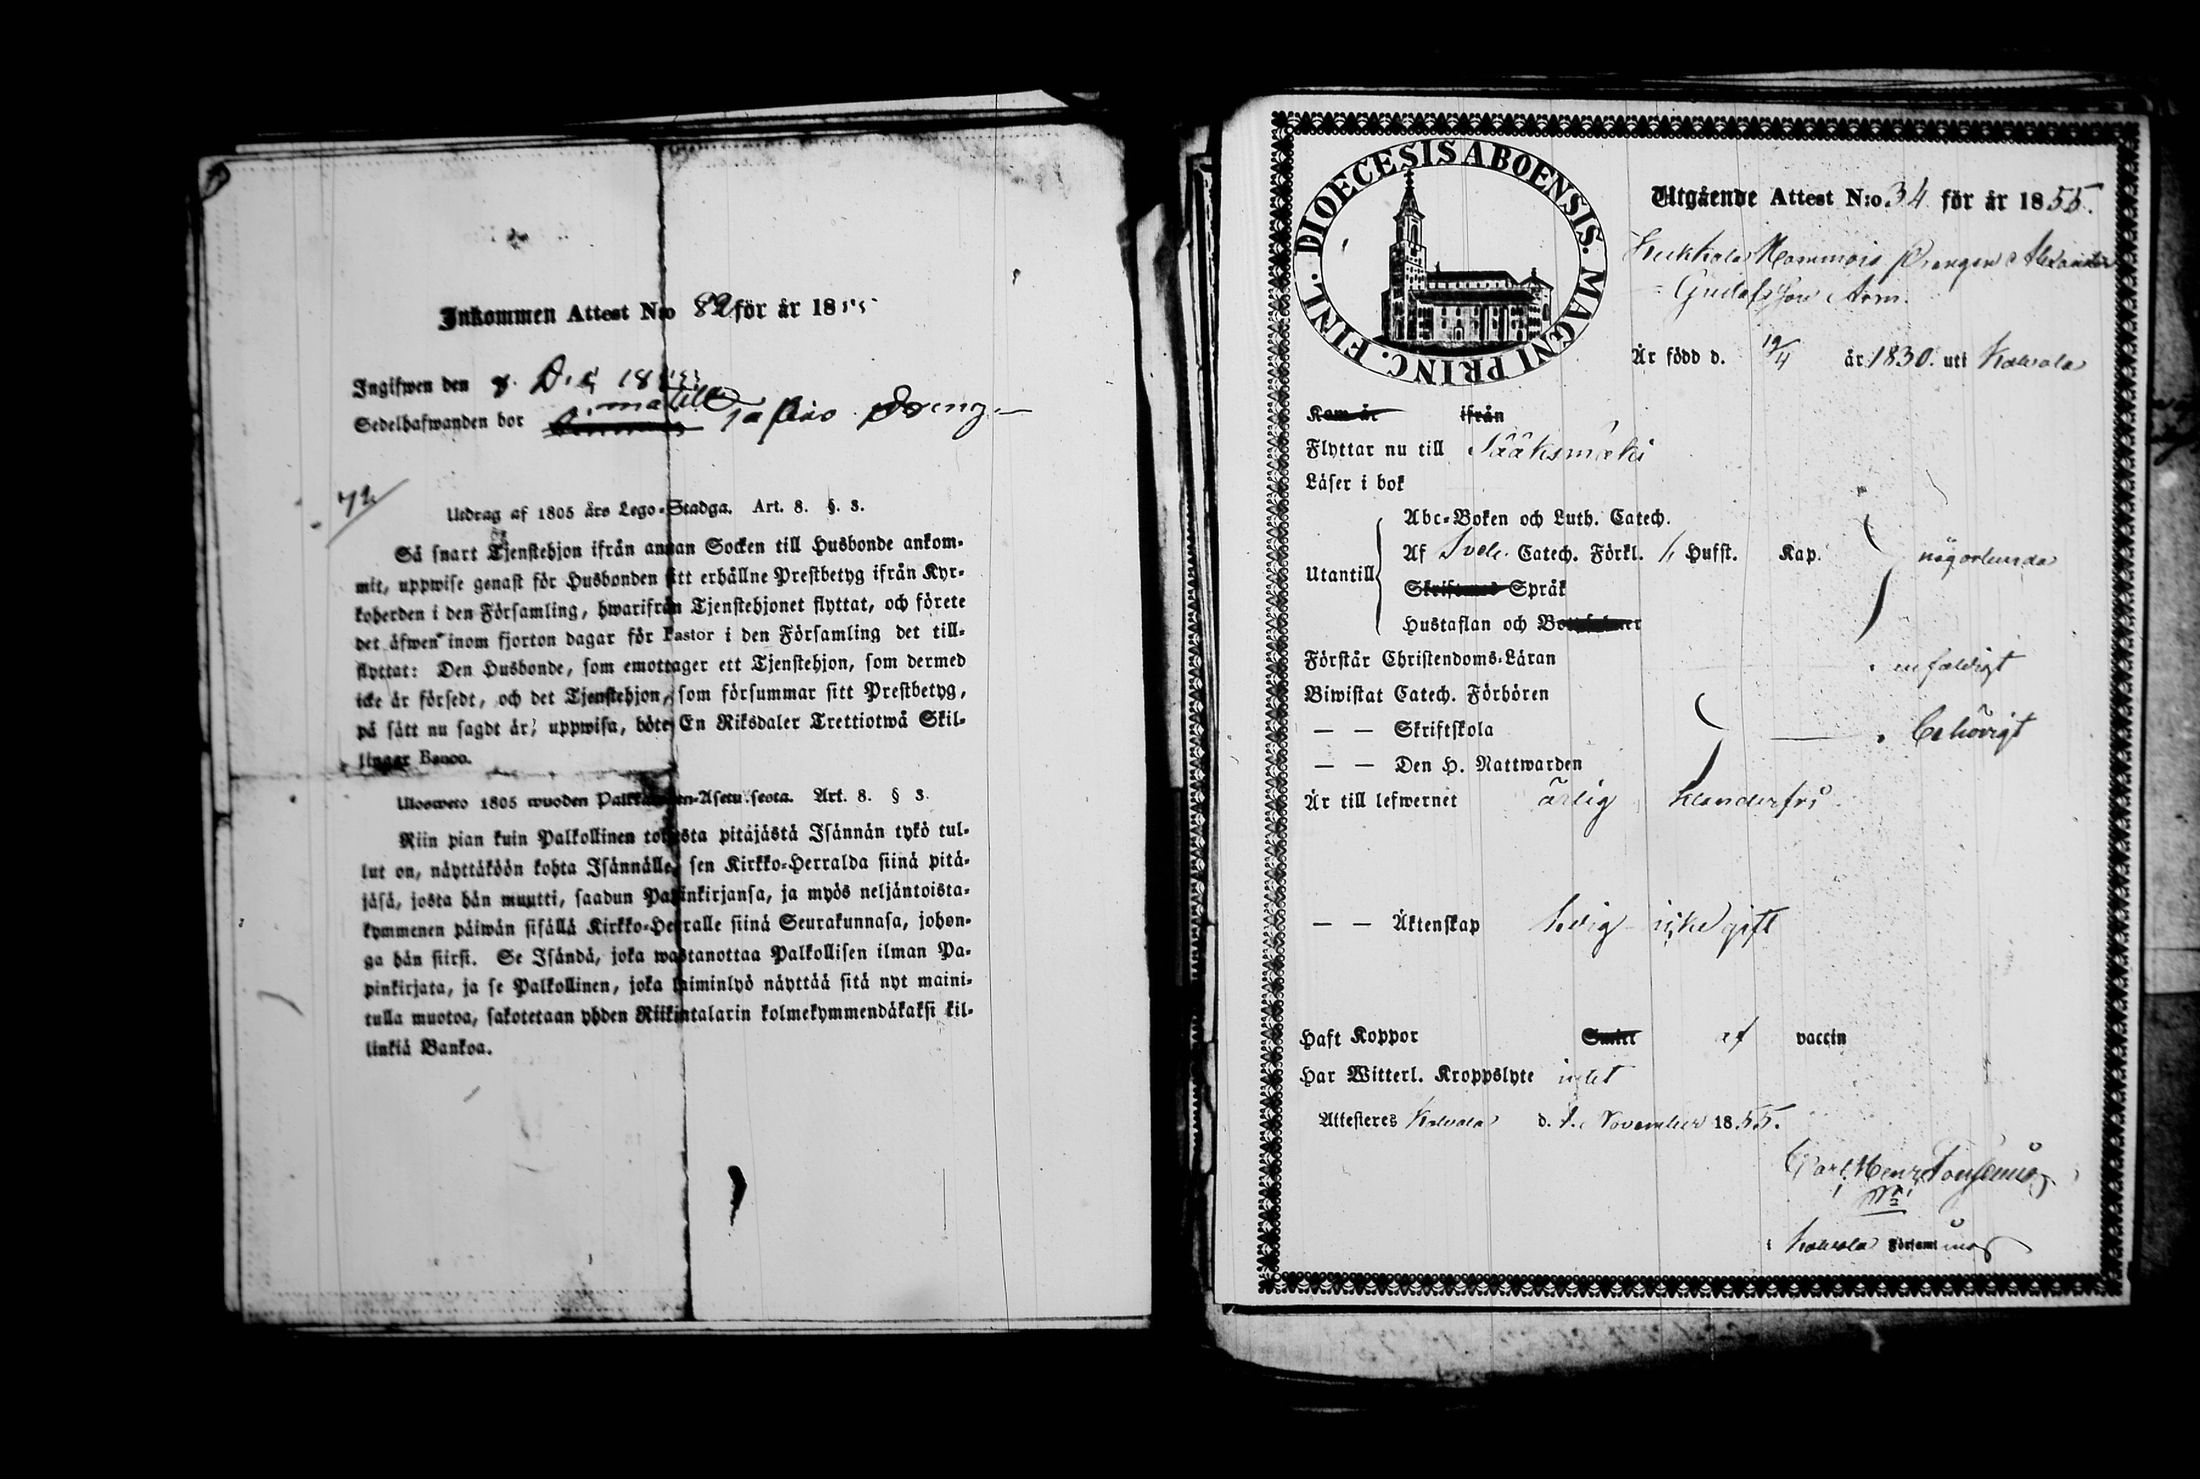 Inkommen Attest N:o 82 för år 1855
Ingifwen den 8 Dec 1855
Sedelhafwanden bor
Utdrag af 1805 års Lego-Stadga. Art. 8. §. 3.
Så snart Tjenstehjon ifrån annan Socken till Husbonde ankom-
mit, uppwise genast för Husbonden sitt erhållne Prestbetyg ifrån Kyr-
koherden i den Församling, hwarifrån Tjenstehjonet flyttat, och förete
det äfwen inom fjorton dagar för Pastor i den Församling det till-
flyttat: Den Husbonde, som emottager ett Tjenstehjon, som dermed
icke är försedt, och det Tjenstehjon, som försummar sitt Prestbetyg,
på sätt nu sagdt är, uppwisa, böte En Riksdaler Trettiotwå Skil-
lingar Banco.
Ulosweto 1805 wuoden Palkollisten-Asetuksesta. Art. 8. § 3.
Niin pian kuin Palkollinen toisesta pitäjästä Isännän tykö tul-
lut on, näyttäköön kohta Isännälle, sen Kirkko-Herralda siinä pitä-
jäsä, josta hän muutti, saadun Papinkirjansa, ja myös neljäntoista-
kymmenen päiwän sisällä Kirkko-Herralle siinä Seurakunnasa, johon-
ga hän siirsi. Se Isändä, joka wastanottaa Palkollisen ilman Pa-
pinkirjata, ja se Palkollinen, joka laiminlyö näyttää sitä nyt maini-
tulla muotoa, sakotetaan yhden Riikintalarin kolmekymmendäkaksi kil-
linkiä Bankoa.
DIOECESIS ABOENSIS. MAGNI PRINC. FINL.
Utgående Attest N:o 34 för år 1855.
Drengen Alexander
Gustafsson Arm.
Är född d. 19/4 år 1830. uti Kalvola
Kom år ifrån
Flyttar nu till Sääksmäki
Läser i bok
Abc-Boken och Luth. Catech.
Utantill Af Sveb. Catech. Förkl. Hufst. Kap. någorlunda
Skriftenes Språk
Hustaflan och
Förstår Christendoms-Läran enfaldigt
Biwistat Catech. Förhören
— — Skriftskola behörigt
— — Den H. Nattwarden
Är till lefwernet ärlig klanderfri
— — Äktenskap ledig icke gift
Haft Koppor af vaccin
Har Witterl. Kroppslyte intet
Attesteres Kalvola d. 1. November 1855.
i Kalvola Församling